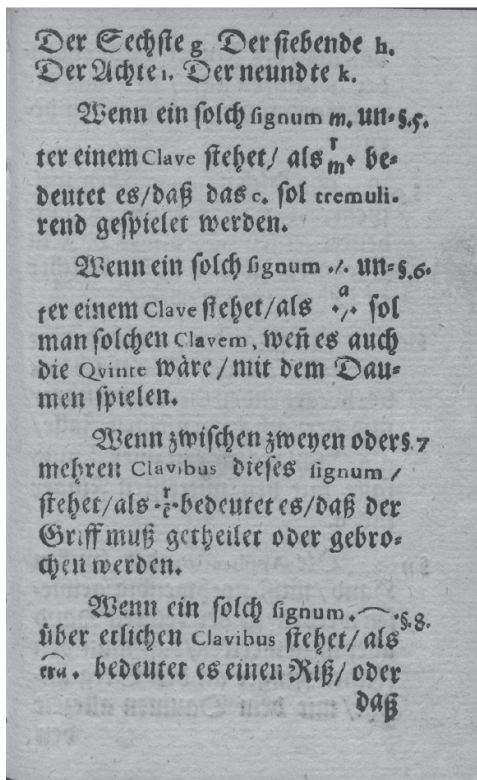 Der Sechste g Der siebende h.
Der Achte i. Der neundte k.
Wenn ein solch signum m. un- §.5.
ter einem Clave stehet/ als r/m. be-
deutet es/daß das c. sol tremuli-
rend gespielet werden.
Wenn ein solch signum ./. un- §.6.
ter einem Clave stehet/als a ./. sol
man solchen Clavem, weñ es auch
die Qvinte wäre/mit dem Dau-
men spielen.
Wenn zwischen zweyen oder §.7
mehren Clavibus dieses signum /
stehet/als bedeutet es/daß der
Griff muß getheilet oder gebro-
chen werden.
Wenn ein solch signum. ⌒. §.8.
über etlichen Clavibus stehet/als
bedeutet es einen Riß/ oder
daß